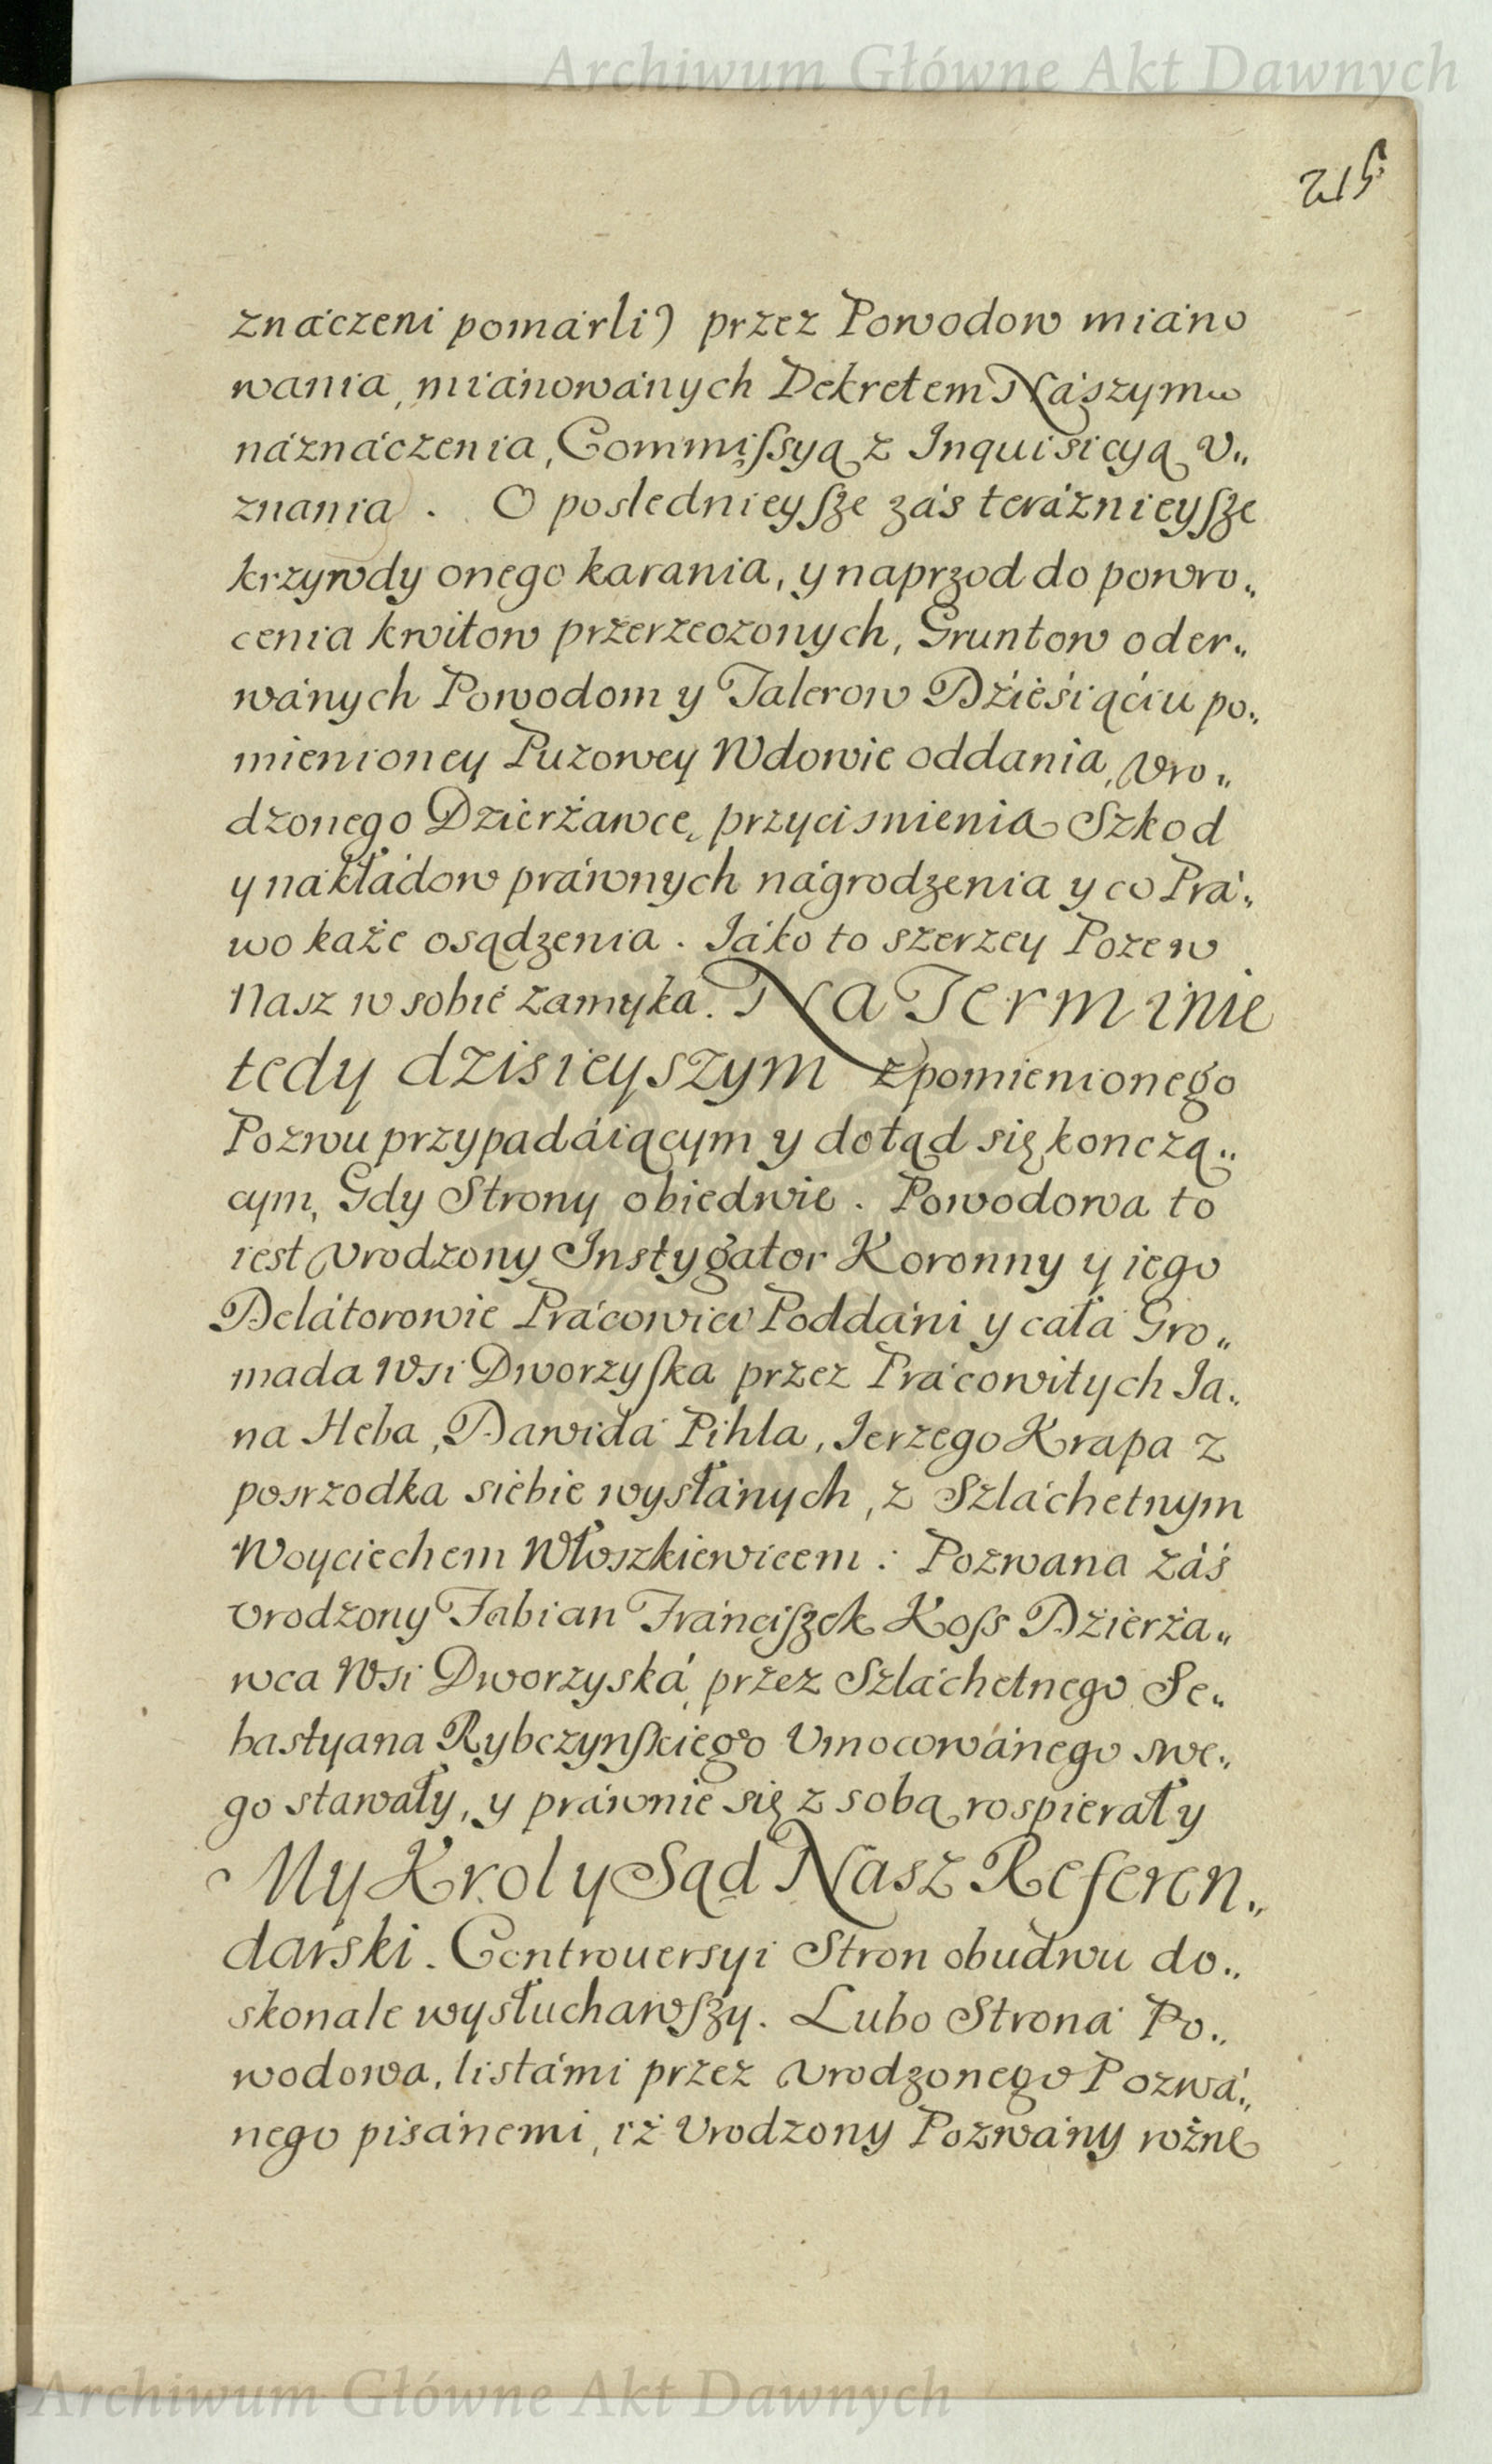 Archiwum Główne Akt Dawnych
215
znáczeni pomárli) przez Powodow miáno
wania, miánowánych Dekretem Nászym
náznáczenia, Commiſsyą z Inquisicyą v„
znania. O poslednieyſze zás teráznieyſze
krzywdy onego karania, y naprzod do powro„
cenia kwitow przerzeczonych, Gruntow oder„
wánych Powodom y Talerow Dźieśiąćiu po„
mienioney Puzowey Wdowie oddania, Vro„
dzonego Dzierżawcę, przycisnienia Szkod
y nakłádow práwnych nágrodzenia y co Prá„
wo każe osądzenia. Jáko to szerzey Pozew
Nasz w sobie zamyka. Na Terminie
tedy dzisieyszym z pomienionego
Pozwu przypadáiącym y dotąd się konczą„
cym, Gdy Strony obiedwie. Powodowa to
iest Vrodzony Instygator Koronny y iego
Delátorowie Prácowici Poddáni y cała Gro„
mada Wsi Dworzyſka przez Prácowitych Ja„
na Heba, Dawidá Pihla, Jerzego Krapa z
posrzodka siebie wysłánych, z Szláchetnym
Woyciechem Włoszkiewicem: Pozwana záś
Vrodzony Fabian Fránciſzek Koſs Dźierża„
wca Wsi Dworzyská, przez Szláchetnego Se„
bastyana Rybczynſkiego Vmocowánego swe„
go stawały, y práwnie się z sobą rospierały
My Krol y Sąd Nasz Referen„
darski. Controuersyi Stron obudwu do„
skonale wysłuchawſzy. Lubo Stroná Po„
wodowa, listámi przez Vrodzonego Pozwá„
nego pisánemi, iż Vrodzony Pozwány rożne
Archiwum Główne Akt Dawnych